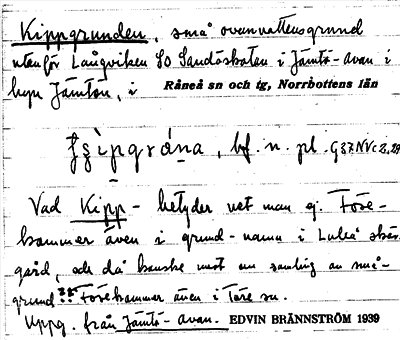 Kippgrunden, små ovanvattensgrund
utanför Långviken SO Sandöskaten i Jämtö-avan i
byn Jämtön, i Råneå sn och tg, Norrbottens län
bf. n. pl.
Vad Kipp- betyder vet man ej. Före-
kommer även i grund-namn i Luleå skär-
gård, och då kanske mest om samling av små-
grund. Förekommer även i Töre sn.
Uppg. från Jämtö-avan. EDVIN BRÄNNSTRÖM 1939